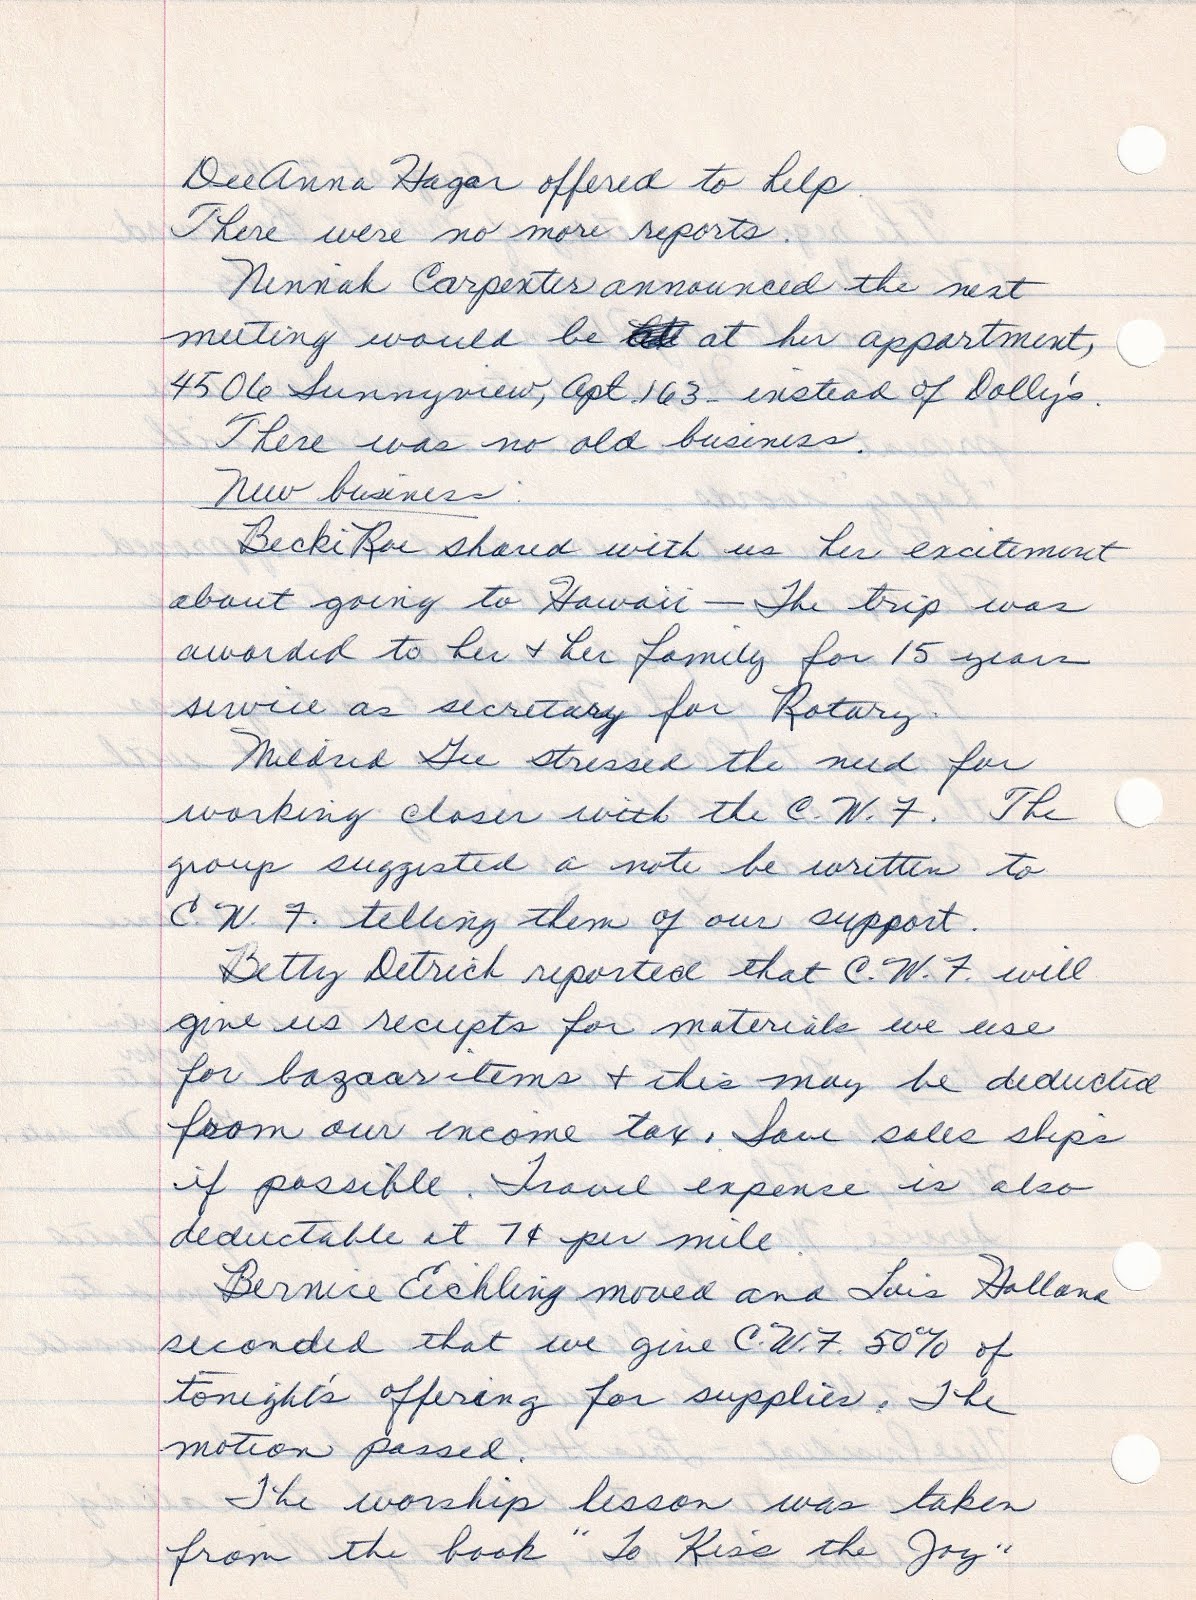 DeeAnna Hagar offered to help.
There were no more reports.
Neniah Carpenter announced the next
meeting would be at her appartment,
4506 Sunnyview, Apt. 163 - instead of Dolly's.
There was no old business.
New business:
Becki Roe shared with us her excitement
about going to Hawaii — The trip was
awarded to her & her family for 15 years
service as secretary for Rotary.
Mildred Gee stressed the need for
working closer with the C.W.F. The
group suggested a note be written to
C.W.F. telling them of our support.
Betty Detrich reported that C.W.F. will
give us receipts for materials we use
for bazaar items & this may be deducted
from our income tax. Save sales slips
if possible. Travel expense is also
deductable at 7¢ per mile.
Bernice Eichling moved and Lois Holland
seconded that we give C.W.F. 50% of
tonight's offering for supplies. The
motion passed.
The worship lesson was taken
from the book "To Kiss the Joy"